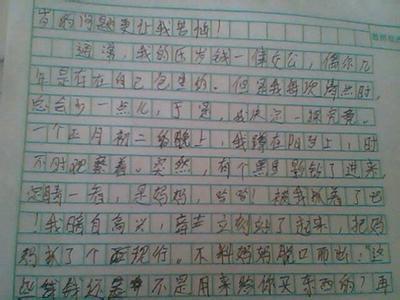 岁的问题更让我苦恼!
通常,我的压岁钱一律充公,偶尔几
年是存在自己包里的。但是我每次清点时,
总会少一点儿,于是,我决定一探究竟。
一个正月初二的晚上,我蹲在阳台上,时
不时观察着。突然,有个黑影钻了进来,
定睛一看,是妈妈,哈哈!被我抓着了吧
!我暗自高兴,立刻站了起来,把妈
妈抓了个正现行。不料妈妈脱口而出:“这
些钱还是不是用来给你买东西的?再